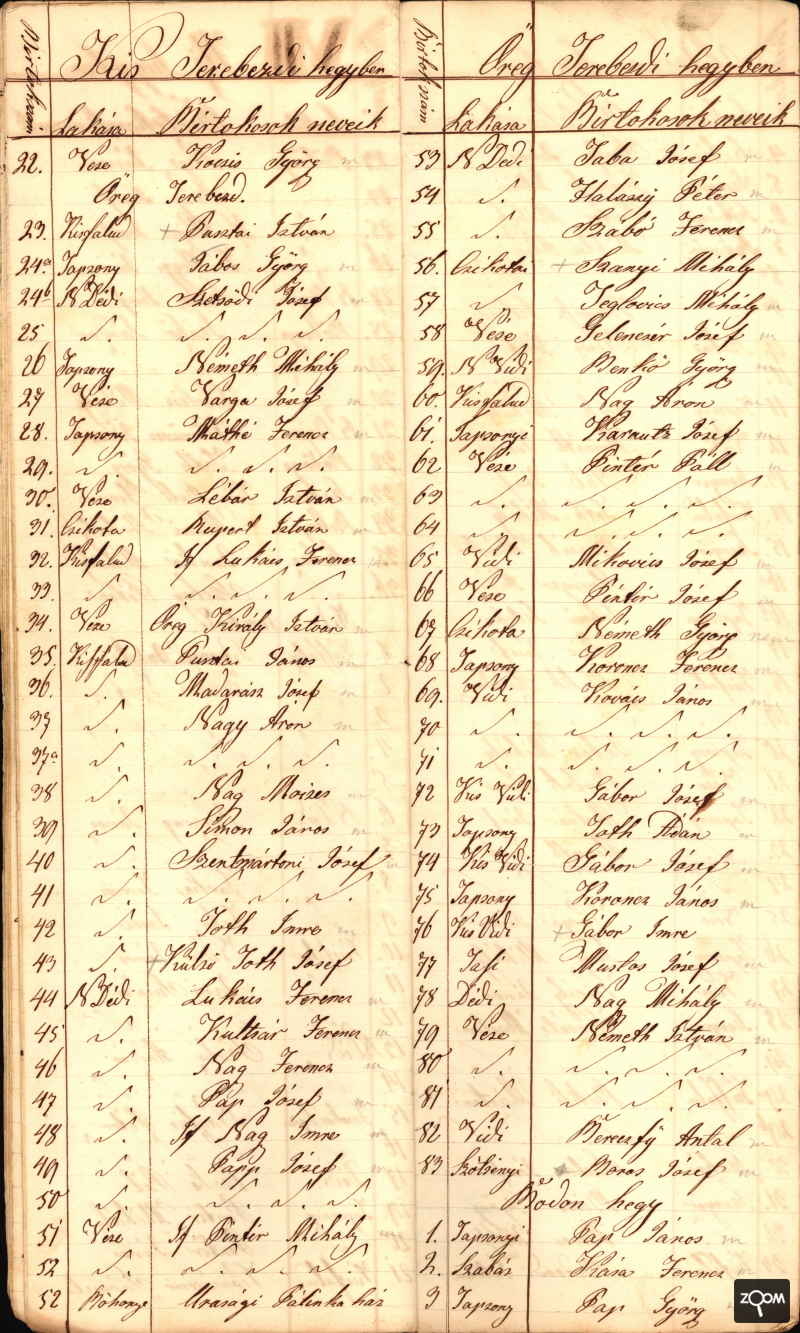 Birtokszám. Kis Terebezdi hegyben
Lakása Birtokosok neveik
22. Vése Kocsis Györg m
Öreg Terebezd.
23. Kisfalud + Pusztai István
24.a Tapsony Tábos Györg m
24b N Dédi Szetsődi Jósef m
25 〃. 〃. 〃. 〃.
26 Tapsony Németh Mihály m
27 Vése Varga Jósef m
28. Tapsony Máthé Ferencz m
29. 〃. 〃. 〃. 〃.
30. Vése Lébár István m
31. Csikota Rupert István m
32. Kisfalud If Lukács Ferencz m
33. 〃 〃. 〃. 〃
34. Vése Öreg Király István m
35. Kisfalud Pusztai János m
36. 〃. Madarász Jósef m
37 〃. Nagy Áron m
37a 〃. 〃. 〃. 〃.
38 〃. Nag Moizes m
39 〃. Simon János m
40 〃. Szentmártoni Jósef m
41 〃. 〃. 〃. 〃
42 〃. Toth Imre m
43 〃. + Külső Toth Jósef
44 N Dédi Lukács Ferencz m
45 〃. Kultsár Ferencz m
46 〃. Nag Ferencz m
47 〃. Pap Jósef m
48 〃. If Nag Imre m
49 〃. Papp Jósef m
50 〃. 〃. 〃. 〃.
51 Vése If Pintér Mihály m
52 〃. 〃. 〃. 〃.
52 Böhönye Urasági Pálinka ház
Birtokszám Öreg Terebezdi hegyben
Lakása Birtokosok neveik
53 N Dédi Taba Jósef m
54 〃. Halászy Péter m
55 〃. Szabó Ferencz m
56. Csikotai + Szanyi Mihály
57 〃 Teglovics Mihály m
58 Vése Gelencsér Jósef m
59. N Vidi Benkő Györg m
60. Kisfalud Nag Áron m
61. Tapsonyi Karautz Jósef m
62 Vése Pintér Páll m
63 〃. 〃. 〃. 〃.
64 〃 〃. 〃. 〃.
65 Vidi Mikovics Jósef m
66 Vése Pintér Jósef m
67 Csikota Németh Györg nem
68 Tapsony Korencz Ferencz m
69. Vidi Kovács János m
70 〃. 〃. 〃. 〃.
71 〃. 〃. 〃. 〃
72 Kis Vidi Gábor Jósef m
73 Tapsony Toth Ádán m
74 Kis Vidi Gábor Jósef m
75 Tapsony Koroncz János m
76 Kis Vidi + Gábor Imre
77 Jasi Mustos Jósef m
78 Dédi Nag Mihály m
79 Vése Németh István m
80 〃. 〃. 〃. 〃
81 〃. 〃. 〃. 〃.
82 Vidi Bereczfÿ Antal m
83 Szötsényi Boros Jósef m
Bődon hegy
1. Tapsonyi Pap János m
2. Szabás Kása Ferencz m
3 Tapsony Pap Györg m
ZOOM